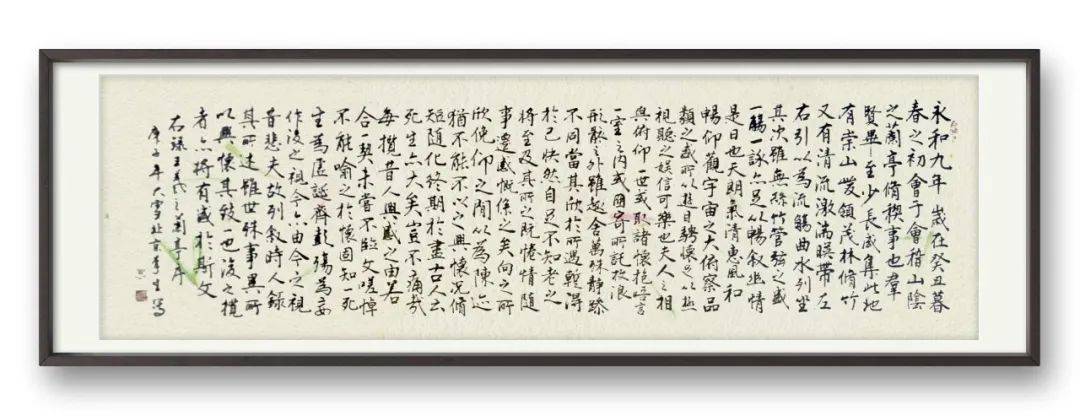 永和九年歲在癸丑暮
春之初會于會稽山陰
之蘭亭脩稧事也羣
賢畢至少長咸集此地
有崇山峻領茂林脩竹
又有清流激湍暎帶左
右引以為流觴曲水列坐
其次雖無絲竹管弦之盛
一觴一詠亦足以暢叙幽情
是日也天朗氣清惠風和
暢仰觀宇宙之大俯察品
類之盛所以遊目騁懷足以極
視聽之娛信可樂也夫人之相
與俯仰一世或取諸懷抱悟言
一室之内或因寄所託放浪
形骸之外雖趣舍萬殊靜躁
不同當其欣於所遇暫得
於己快然自足不知老之
將至及其所之既惓情隨
事遷感慨係之矣向之所
欣俛仰之間以為陳迹
猶不能不以之興懷況脩
短隨化終期於盡古人云
死生亦大矣豈不痛哉
每攬昔人興感之由若
合一契未嘗不臨文嗟悼
不能喻之於懷固知一死
生為虛誕齊彭殤為妄
作後之視今亦由今之視
昔悲夫故列叙時人錄
其所述雖世殊事異所
以興懷其致一也後之攬
者亦將有感於斯文
右録王羲之蘭亭序
庚子年大雪北京李生寫